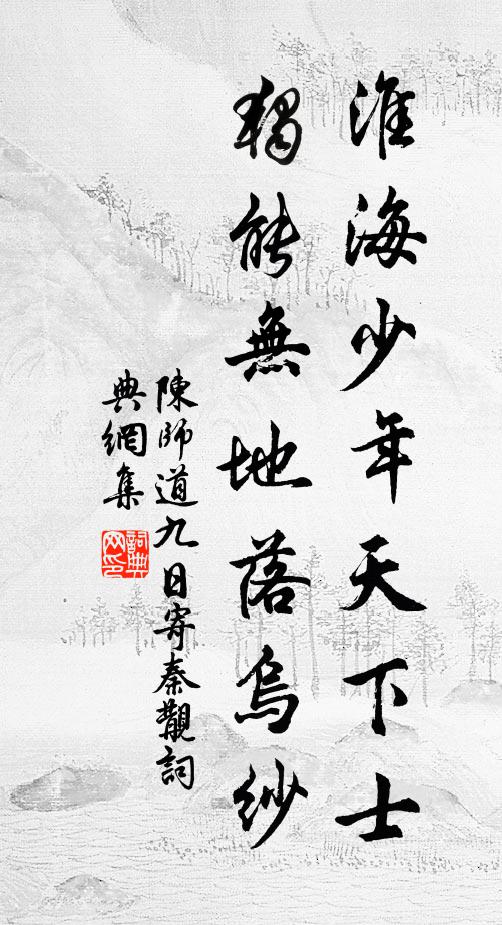 淮海少年天下士
獨能無地落烏紗
陳師道九日寄秦觀詞
典網集
詞典
网印